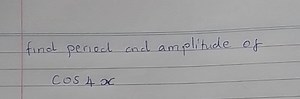 find period and amplitude of
cos 4x